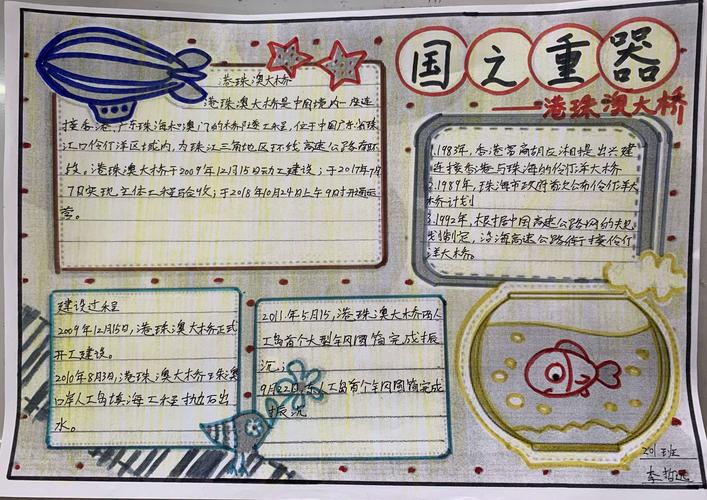 国之重器
——港珠澳大桥
港珠澳大桥
港珠澳大桥是中国境内一座连
接香港、广东珠海和澳门的桥隧工程,位于中国广东省珠
江口伶仃洋区域内,为珠江三角地区环线高速公路南环
段,港珠澳大桥于2009年12月15日动工建设;于2017年7月
7日实现主体工程验收;于2018年10月24日上午9时开通运
营。
1.1983年,香港
商胡应湘提出兴建
连接香港与珠海的伶仃洋大桥
2.1989年,珠海市政府首次公布伶仃洋大
桥计划
3.1992年,根据中国高速公路网的规
划制定,沿海高速公路衔接伶仃
洋大桥。
建设过程
2009年12月15日,港珠澳大桥正式
开工建设。
2010年8月3日,港珠澳大桥珠澳
口岸人工岛填海工程抛石出
水。
2011.年5月15,港珠澳大桥西人
工岛首个大型钢圆筒完成振
沉;
9月22日,东人工岛首个钢圆筒完成
振沉
201班
李哲